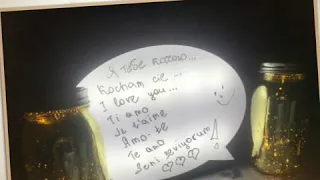 Я тебе кохаю...
Kocham cie...
I love you...
Ti amo
Je t'aime
Amo-te
Te amo
Seni seviyorum!